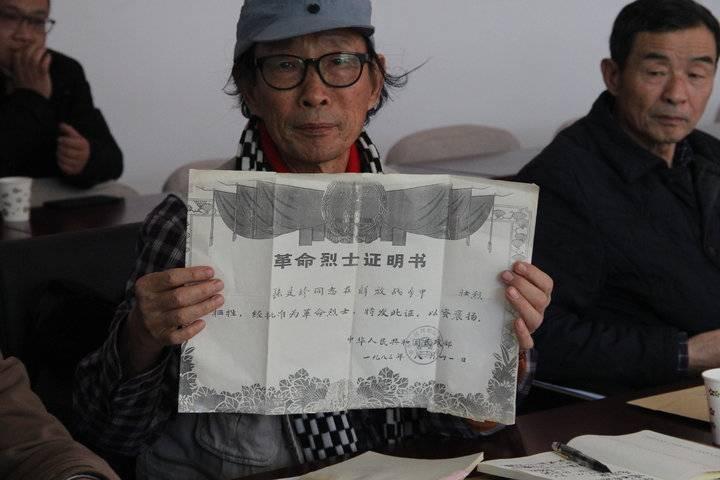 革命烈士证明书
同志在解放战争中 壮烈
牺牲，经批准为革命烈士，特发此证，以资褒扬。
中华人民共和国民政部
一九八三年 月 一日